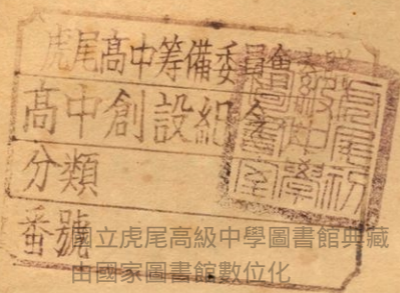 虎尾高中籌備委員會
高中創設紀念
分類
番號
虎尾初
級中學
圖書室
國立虎尾高級中學圖書館典藏
由國家圖書館數位化